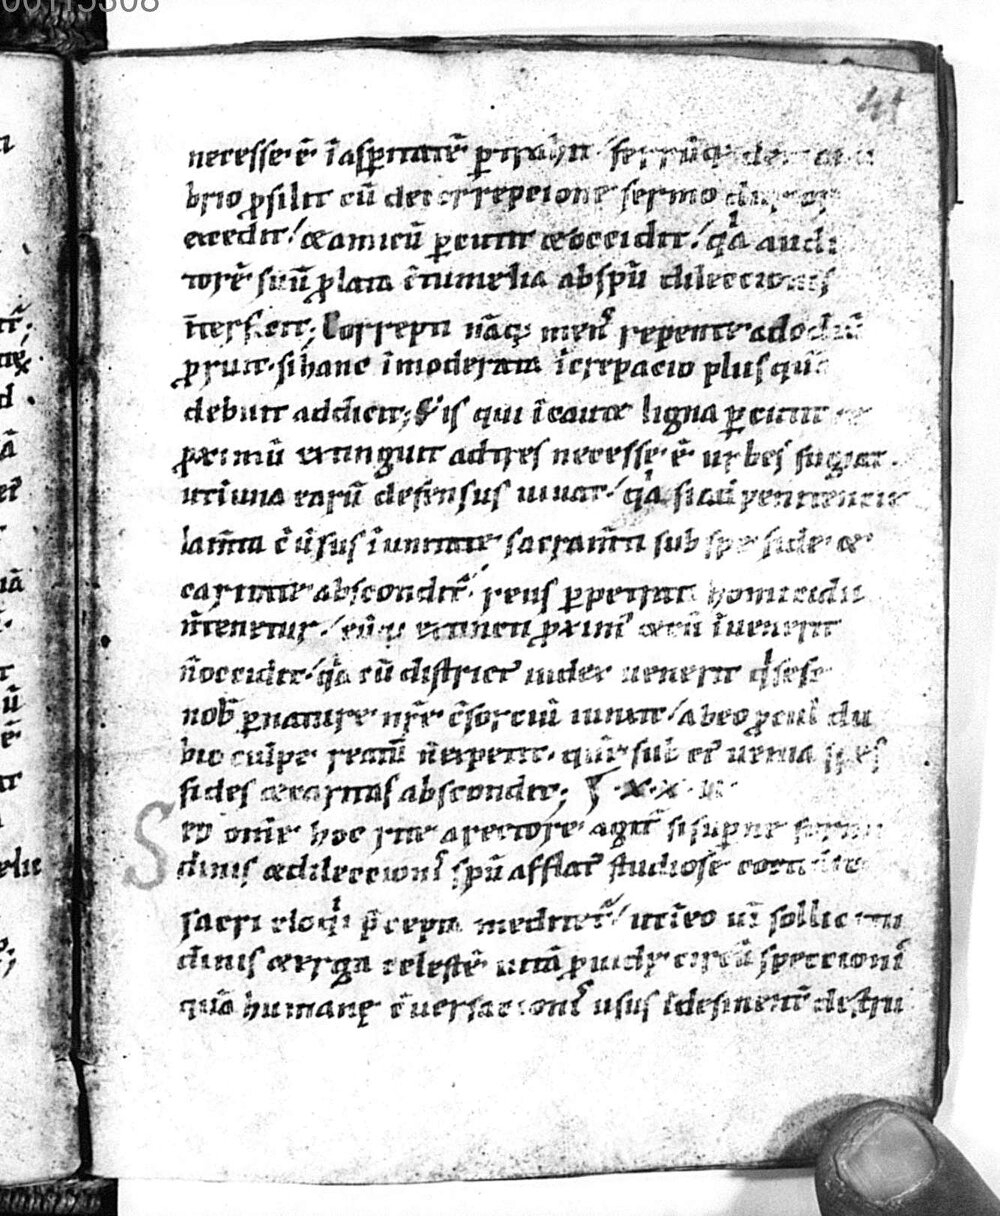 00115308
41
necesse· ē īaspitatē ꝑtrahit / ferrūq; de
brio ꝓsilit cū de correpcione sermo
excedit / & amicū ꝑcutit & occidit / qa audi
torē suū ꝓlata ↄ̄tumelia abspū dileccionis
īterficit; Correpti nāq; mens repente adodiū
ꝓruit· si hanc īmoderata īcrepacio plusquā
debuit addicit; S; is qui īcaute ligna ꝑcutit &
ꝓximū extinguit adtres necesse· ē urbes fugiat·
utiuna earū defensus uiuat / qa siad penitencie
lam̄ta ↄ̄uersus īunitate sacram̄ti sub spe fide &
caritate absconditʼ / reus ꝑpetrati homicidii
n̄tenetur / eūq; extincti ꝓximus & cū īuenerit
n̄occidit / qa cū districtʼ iudex uenerit qi sese
nob ꝑnature nr̄e ↄ̄sorciū iunxit / abeo ꝓcul du
bio culpe reatū n̄expetit· quē sub ei uenia spes
fides & caritas abscondit; X·X·II·
Sed om̄e hoc rite a rectore agit si supne formi
dinis & dileccionis spū afflatʼ studiose cotidie
sacri eloqi p̄cepta meditetʼ / ut īeo uī sollicitu
dinis & erga celestē uitā ꝓuide circūspeccionis
quā humanę ↄ̄uersacionis usus īdesinent̄ destru